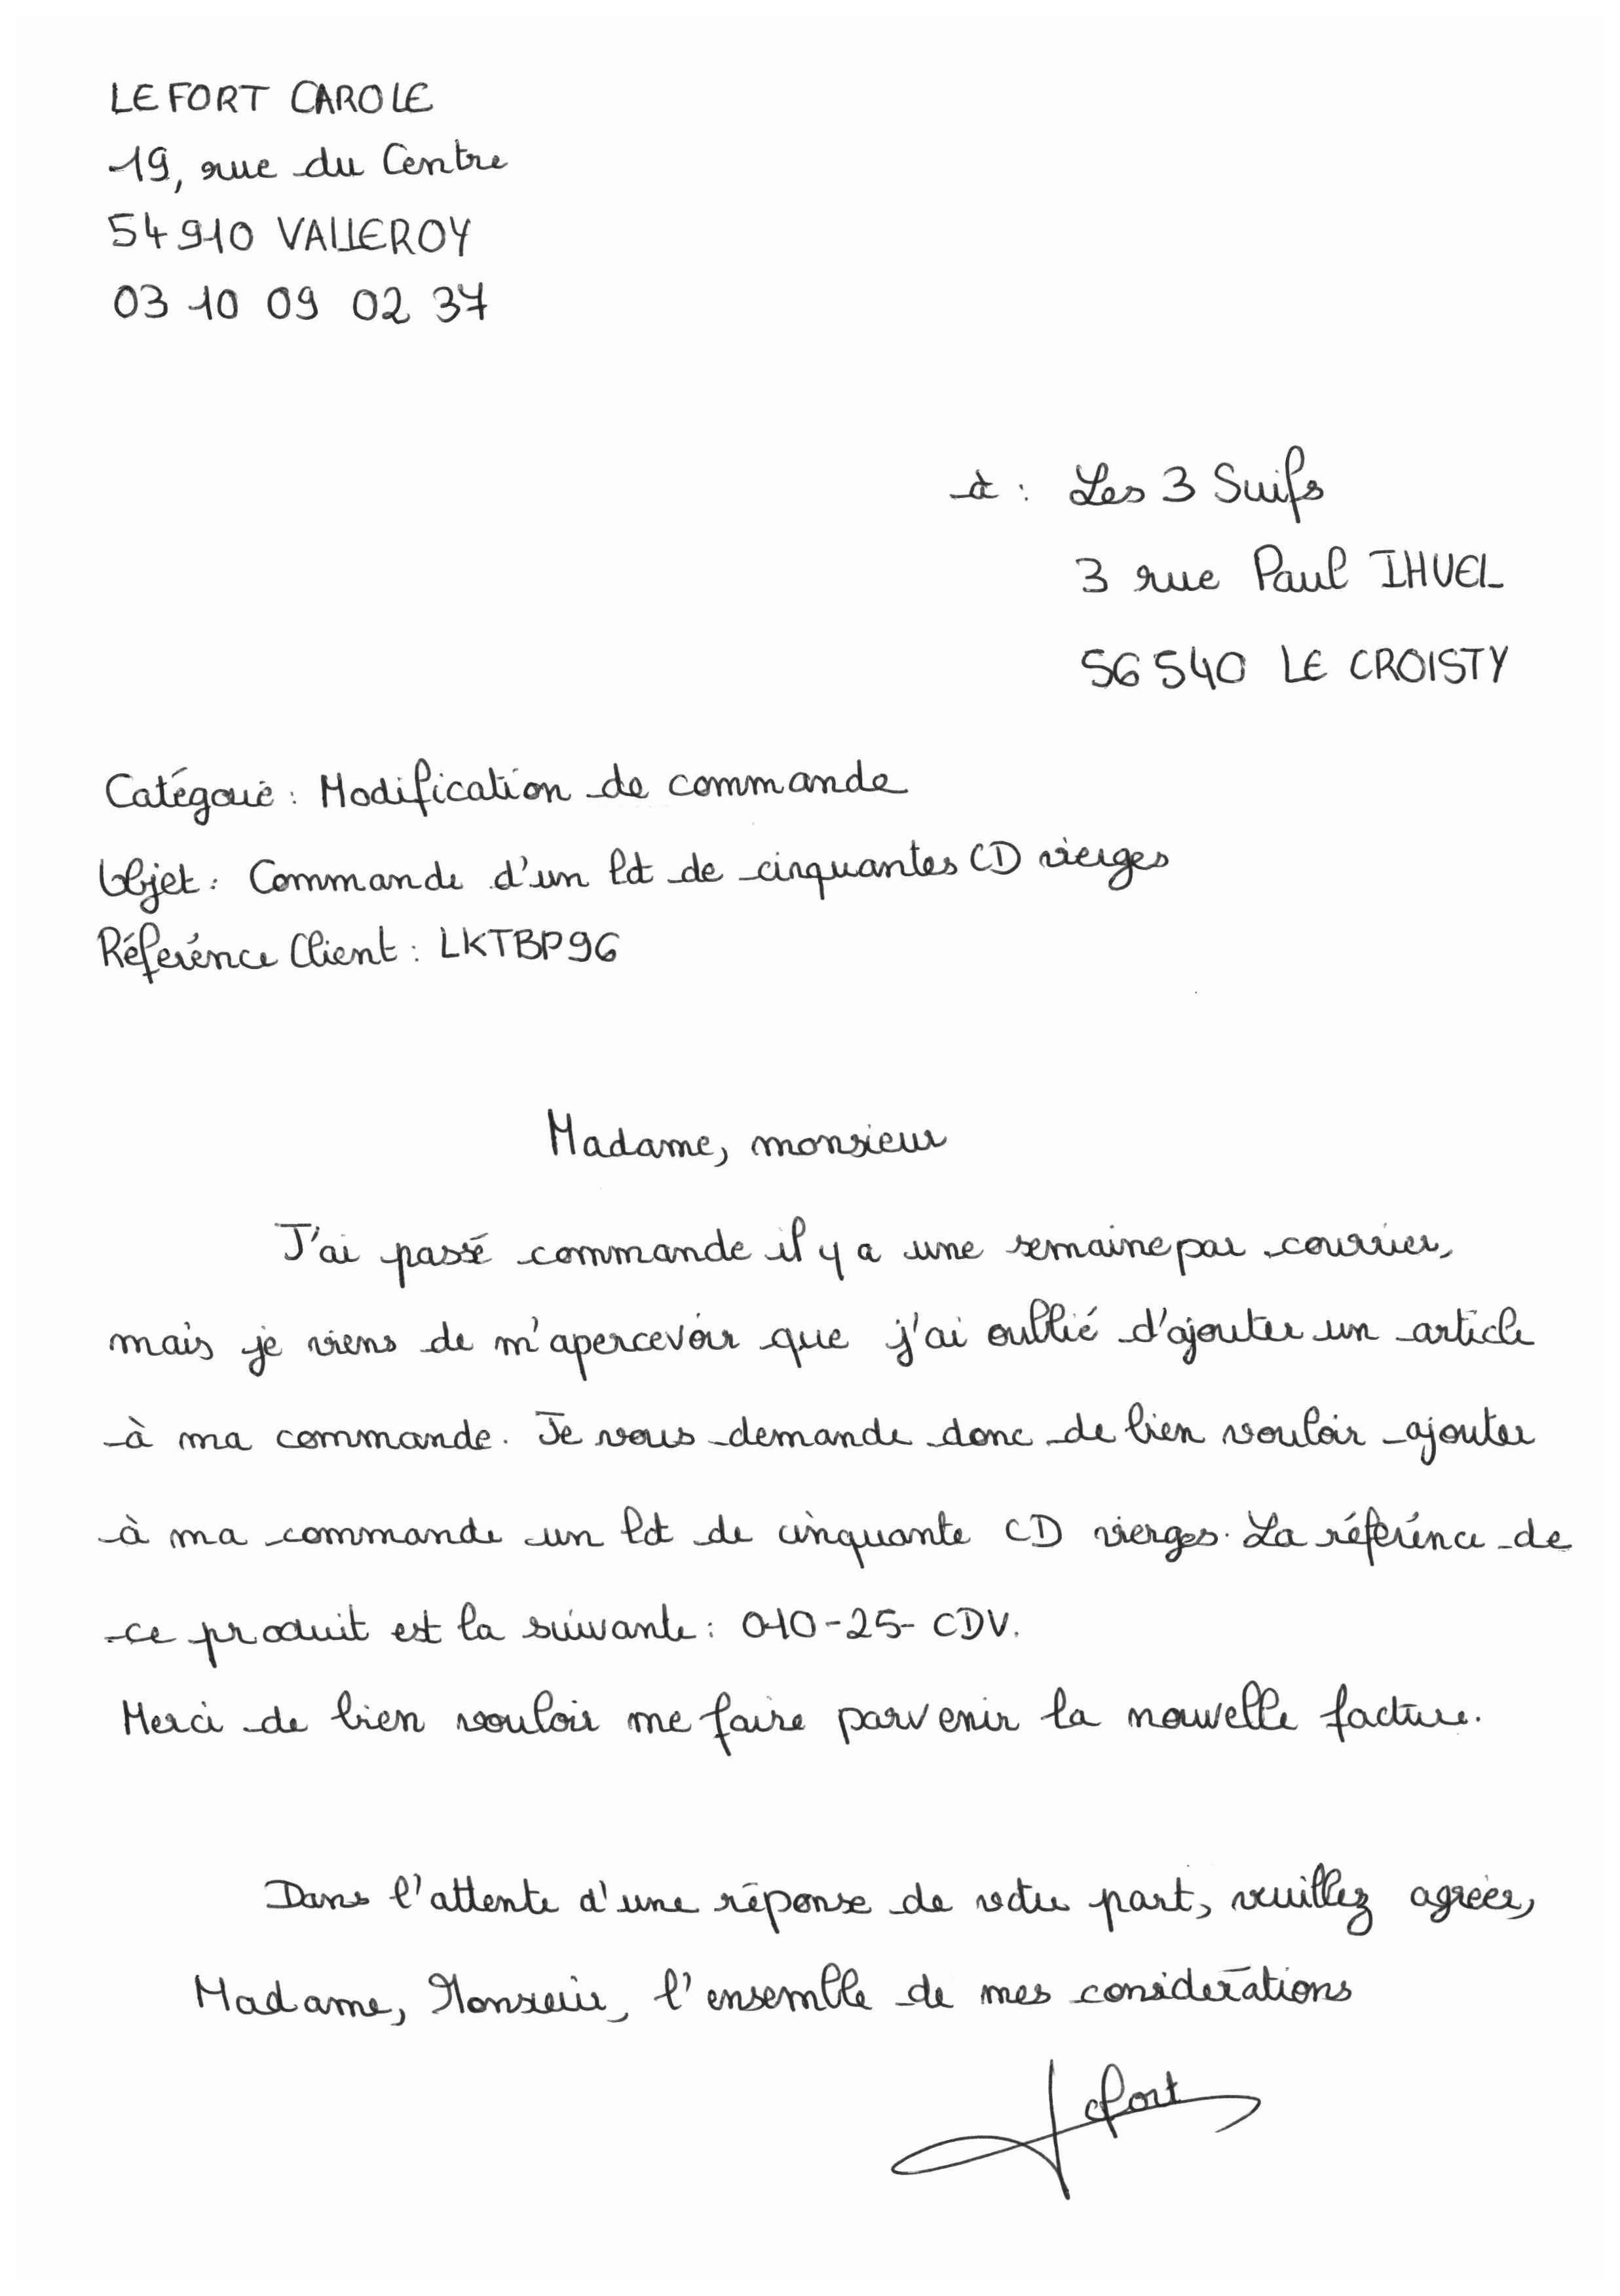 LEFORT CAROLE
19, rue du Centre
54910 VALLEROY
03 10 09 02 37
à : Les 3 Suifs
3 rue Paul IHUEL
56540 LE CROISTY
Catégorie : Modification de commande
Objet : Commande d'un lot de cinquantes CD vierges
Référence Client : LKTBP96
Madame, monsieur
J'ai passé commande il y a une semaine par courrier,
mais je viens de m'apercevoir que j'ai oublié d'ajouter un article
à ma commande. Je vous demande donc de bien vouloir ajouter
à ma commande un lot de cinquante CD vierges. La référence de
ce produit est la suivante : 010-25-CDV.
Merci de bien vouloir me faire parvenir la nouvelle facture.
Dans l'attente d'une réponse de votre part, veuillez agréer,
Madame, Monsieur, l'ensemble de mes considérations
Lefort